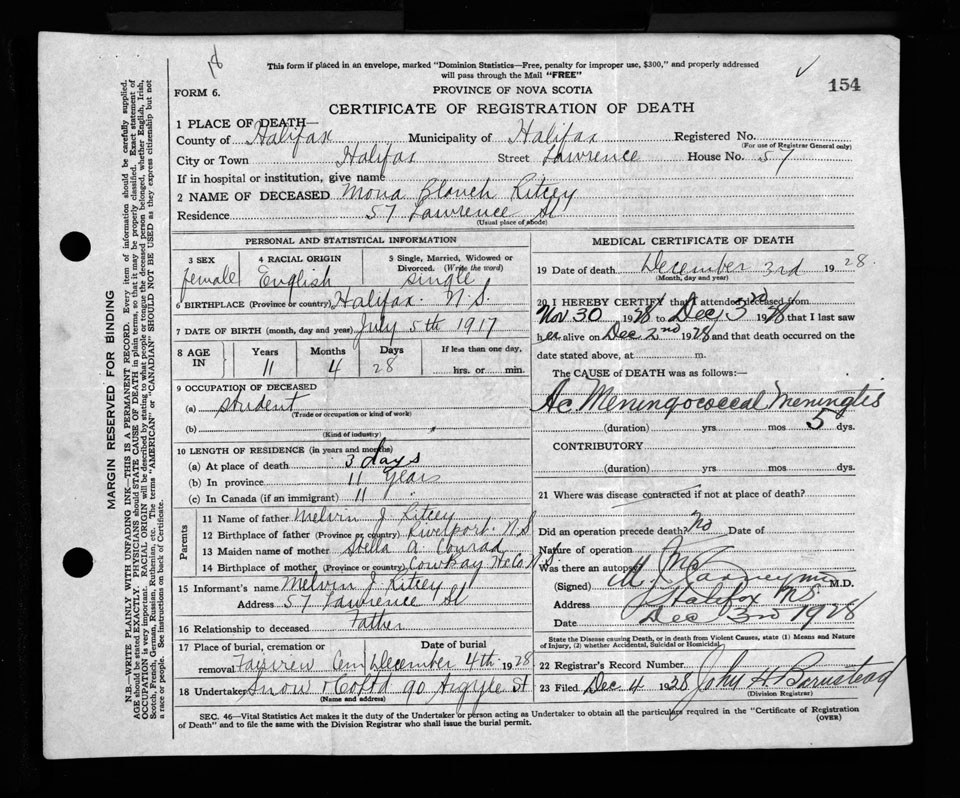 This form if placed in an envelope, marked "Dominion Statistics—Free, penalty for improper use, $300," and properly addressed
will pass through the Mail "FREE"
154
FORM 6.
PROVINCE OF NOVA SCOTIA
CERTIFICATE OF REGISTRATION OF DEATH
1 PLACE OF DEATH—
County of Halifax Municipality of Halifax Registered No.
(For use of Registrar General only)
City or Town Halifax Street Lawrence House No. 57
If in hospital or institution, give name
2 NAME OF DECEASED Mona Blanch Ritcey
Residence 57 Lawrence St
(Usual place of abode)
PERSONAL AND STATISTICAL INFORMATION
3 SEX female
4 RACIAL ORIGIN English
5 Single, Married, Widowed or Divorced. (Write the word) single
6 BIRTHPLACE (Province or country) Halifax. N.S.
7 DATE OF BIRTH (month, day and year) July 5th 1917
8 AGE IN Years 11 Months 4 Days 28 If less than one day, hrs. or min.
9 OCCUPATION OF DECEASED
(a) Student
(Trade or occupation or kind of work)
(b)
(Kind of industry)
10 LENGTH OF RESIDENCE (in years and months)
(a) At place of death 3 days
(b) In province 11 years
(c) In Canada (if an immigrant) 11 "
Parents
11 Name of father Melvin J. Ritcey
12 Birthplace of father (Province or country) Riverport. N.S
13 Maiden name of mother Stella A. Conrad
14 Birthplace of mother (Province or country) Cow Bay Hx Co N.S
15 Informant's name Melvin J. Ritcey
Address 57 Lawrence St
16 Relationship to deceased Father
17 Place of burial, cremation or removal Fairview Cem Date of burial December 4th 1928
18 Undertaker Snow & Co Ltd 90 Argyle St
(Name and address)
MEDICAL CERTIFICATE OF DEATH
19 Date of death December 3rd 1928.
(Month, day and year)
20 I HEREBY CERTIFY that I attended deceased from
Nov 30 1928 to Dec 3rd 1928 that I last saw
her alive on Dec 2nd 1928 and that death occurred on the
date stated above, at m.
The CAUSE of DEATH was as follows:—
Ac. Meningococcal Meningitis
(duration) yrs mos 5 dys.
CONTRIBUTORY
(duration) yrs. mos. dys.
21 Where was disease contracted if not at place of death?
Did an operation precede death? No Date of
Nature of operation
Was there an autopsy? No
(Signed) M.D.
Address Halifax N.S.
Date Dec 3rd 1928
State the Disease causing Death, or in death from Violent Causes, state (1) Means and Nature
of Injury, (2) whether Accidental, Suicidal or Homicidal.
22 Registrar's Record Number
23 Filed Dec 4 1928 John H Barnstead
(Division Registrar)
SEC. 46—Vital Statistics Act makes it the duty of the Undertaker or person acting as Undertaker to obtain all the particulars required in the "Certificate of Registration
of Death" and to file the same with the Division Registrar who shall issue the burial permit.
(OVER)
MARGIN RESERVED FOR BINDING
N.B.—WRITE PLAINLY WITH UNFADING INK—THIS IS A PERMANENT RECORD. Every item of information should be carefully supplied.
AGE should be stated EXACTLY. PHYSICIANS should STATE CAUSE OF DEATH in plain terms, so that it may be properly classified. Exact statement of
OCCUPATION is very important. RACIAL ORIGIN will be described by stating to what people or tongue the deceased person belonged, whether English, Irish,
Scotch, French, German, Russian, Ruthenian, etc. The terms "AMERICAN" or "CANADIAN" SHOULD NOT BE USED as they express citizenship but not
a race or people. See instructions on back of Certificate.